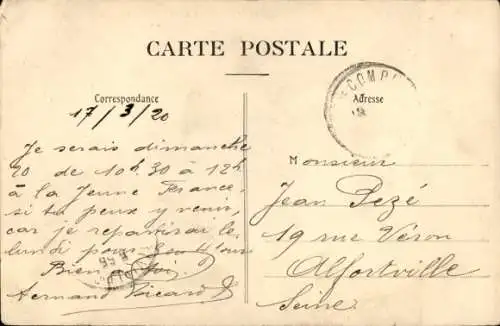 CARTE POSTALE
Correspondance
Adresse
COMPI
17/3/20
Je serais dimanche
20 de 10h.30 à 12h
à la Jeune France,
si tu peux y venir,
car je repartirai le
lundi pour
Bien à toi,
Fernand Picard
Monsieur
Jean Pezé
19 rue Véron
Alfortville
Seine